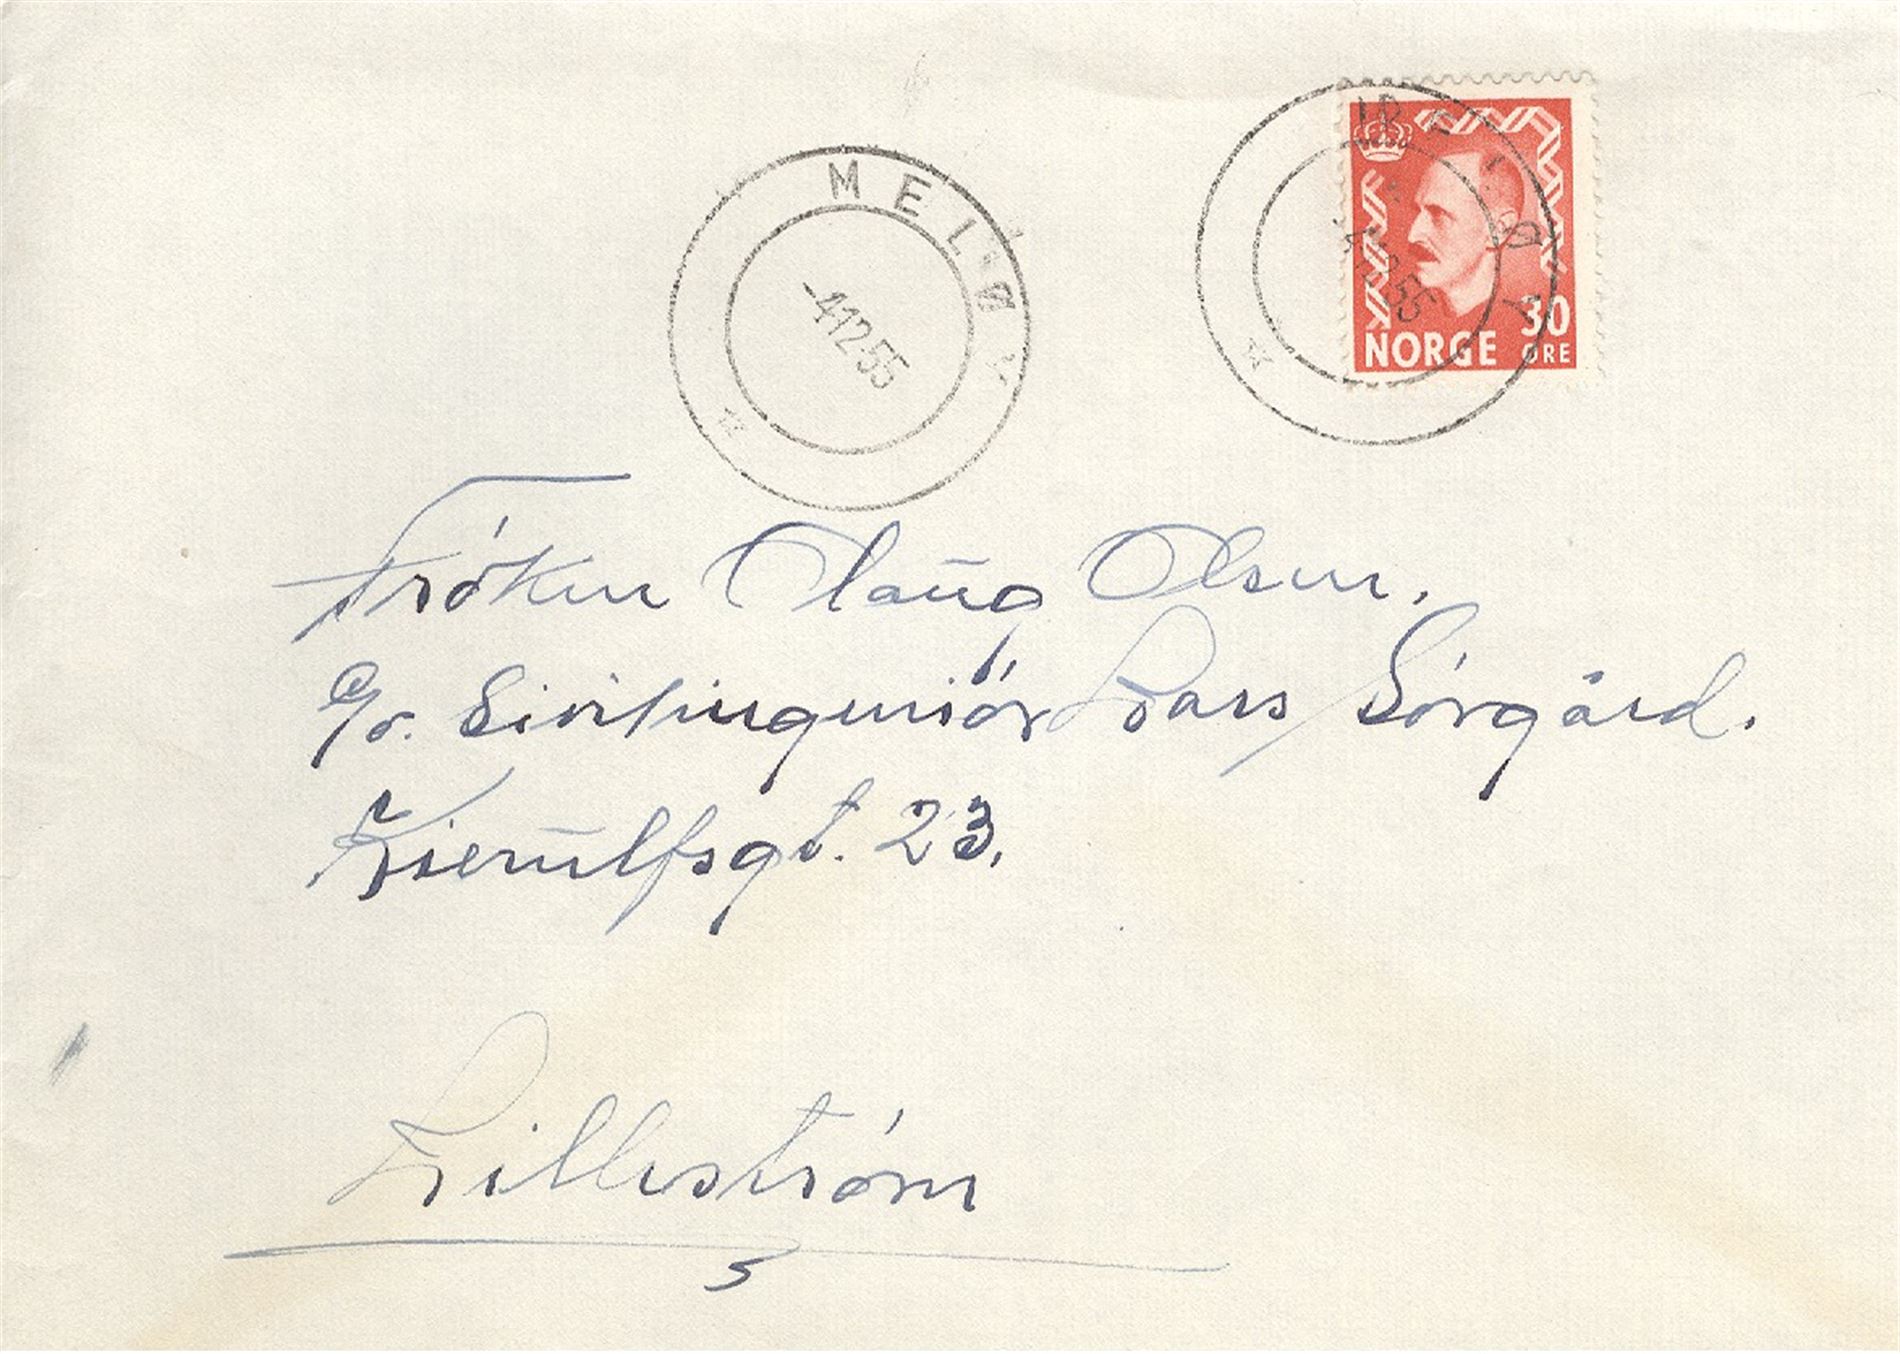 MELØY
-4.12.55
30
NORGE ØRE
Fróken Olaug Olsen.
c/o. Sivilingeniör Lars Sórgård.
Kierulfsgt. 23.
Lillestróm